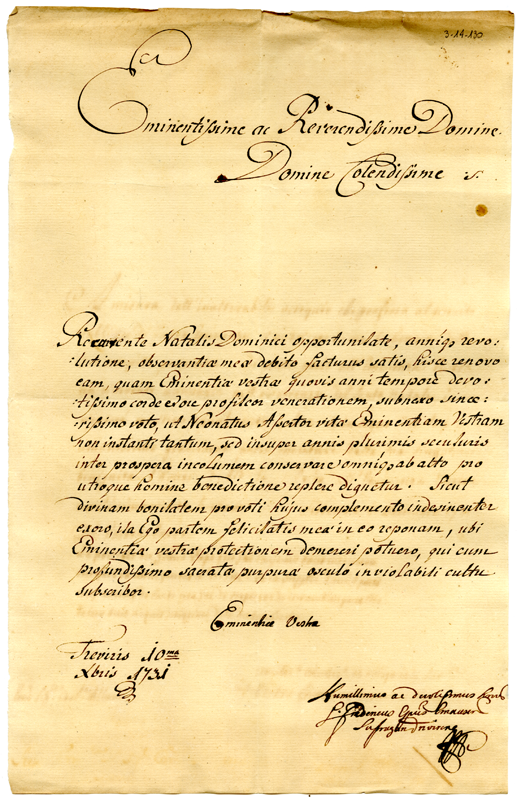 3-14-130
Eminentissime ac Reverendissime Domine
Domine Colendissime
Recurrente Natalis Dominici opportunitate, anniq3 revo:
:lutione, observantiæ meæ debito facturus satis, hisce renovo
eam, quam Eminentiæ vestræ quovis anni tempore devo:
:tissimo corde exoue profiteor venerationem, subnexo since:
:rissimo voto, ut Neonatus Assertor vitæ Eminentiam Vestram
non instanti tantum, sed insuper annis plurimis secuturis
inter prospera incolumem conservare omniq3 ab alto pro
utroque homine benedictione replere dignetur. Sicut
divinam bonitatem pro voti hujus complemento indesinenter
exoro, ita Ego partem felicitatis meæ in eo reponam, ubi
Eminentiæ vestræ protectionem demereri potuero, qui cum
profundissimo sacratæ purpuræ osculo inviolabili cultu
subscribor.
Eminentiæ Vestræ
Treviris 10ma
Xbris 1731
Humillimus ac devotissimus
Epus Emausen